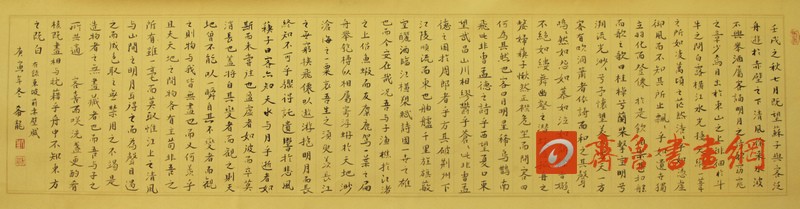 壬戌之秋七月既望蘇子與客泛
舟遊於赤壁之下清風徐來水波
不興舉酒屬客誦明月之詩歌窈窕
之章少焉月出於東山之上徘徊於斗
牛之間白露橫江水光接天縱一葦
之所如凌萬頃之茫然浩浩乎如憑虛
御風而不知其所止飄飄乎如遺世獨
立羽化而登僊於是飲酒樂甚扣舷
而歌之歌曰桂棹兮蘭槳擊空明兮
溯流光渺渺兮予懷望美人兮天一方
客有吹洞簫者倚歌而和之其聲
嗚嗚然如怨如慕如泣如訴餘音嫋嫋
不絕如縷舞幽壑之潛蛟泣孤舟之
嫠婦蘇子愀然正襟危坐而問客曰
何為其然也客曰月明星稀烏鵲南
飛此非曹孟德之詩乎西望夏口東
望武昌山川相繆鬱乎蒼蒼此非曹孟
德之困於周郎者乎方其破荊州下
江陵順流而東也舳艫千里旌旗蔽
空釃酒臨江橫槊賦詩固一世之雄
也而今安在哉況吾與子漁樵於江渚
之上侶魚蝦而友麋鹿駕一葉之扁
舟舉匏樽以相屬寄蜉蝣於天地渺
滄海之一粟哀吾生之須臾羨長江
之無窮挾飛僊以遨遊抱明月而長
終知不可乎驟得託遺響於悲風
蘇子曰客亦知夫水與月乎逝者如
斯而未嘗往也盈虛者如彼而卒莫
消長也蓋將自其變者而觀之則天
地曾不能以一瞬自其不變者而觀
之則物與我皆無盡也而又何羨乎
且夫天地之間物各有主苟非吾之
所有雖一毫而莫取惟江上之清風
與山間之明月耳得之而為聲目遇
之而成色取之無禁用之不竭是
造物者之無盡藏也而吾與子之
所共適 客喜而笑洗盞更酌肴
核既盡 相與枕藉乎舟中不知東方
之既白 右錄東坡前赤壁賦
庚寅年冬 龍
齊魯書畫網